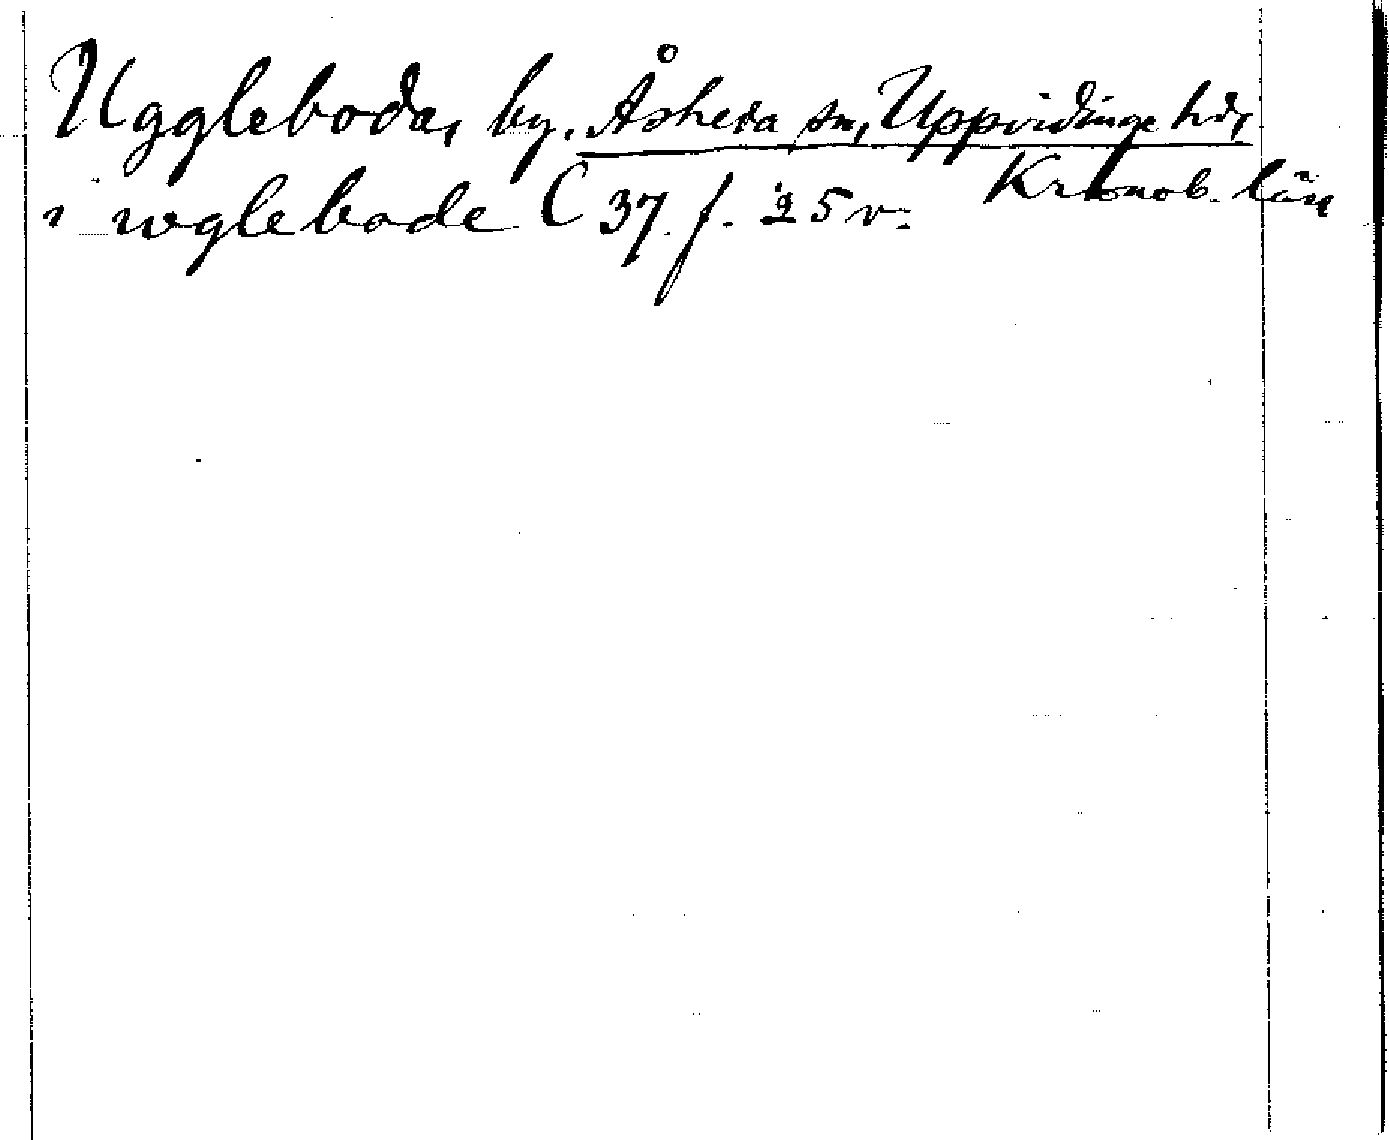 Uggleboda, by, Åsheda sn, Uppvidinge hd,
Kronob. län
i wglebode C 37 f. 25 v.